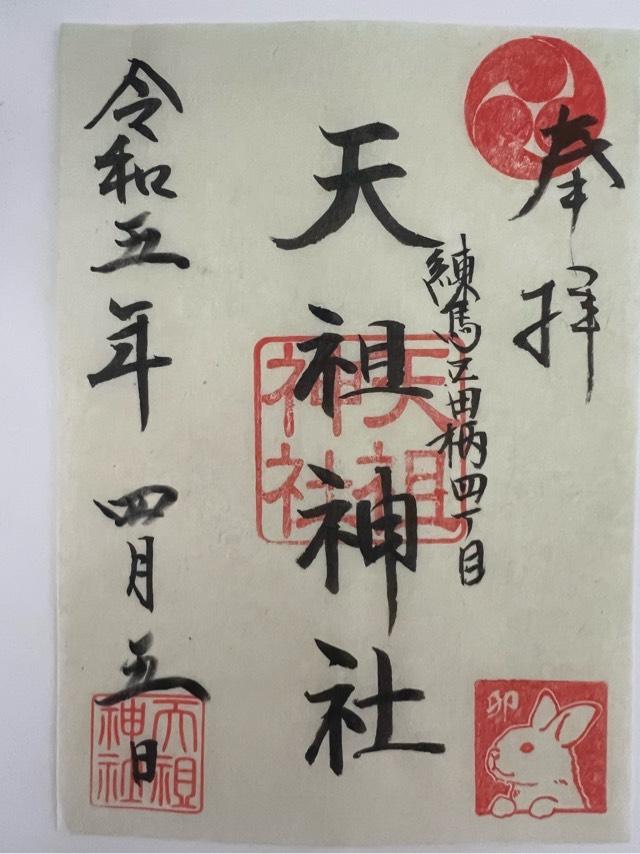 奉拝
練馬区田柄四丁目
天祖神社
天祖神社
令和五年 四月五日
天祖神社
卯